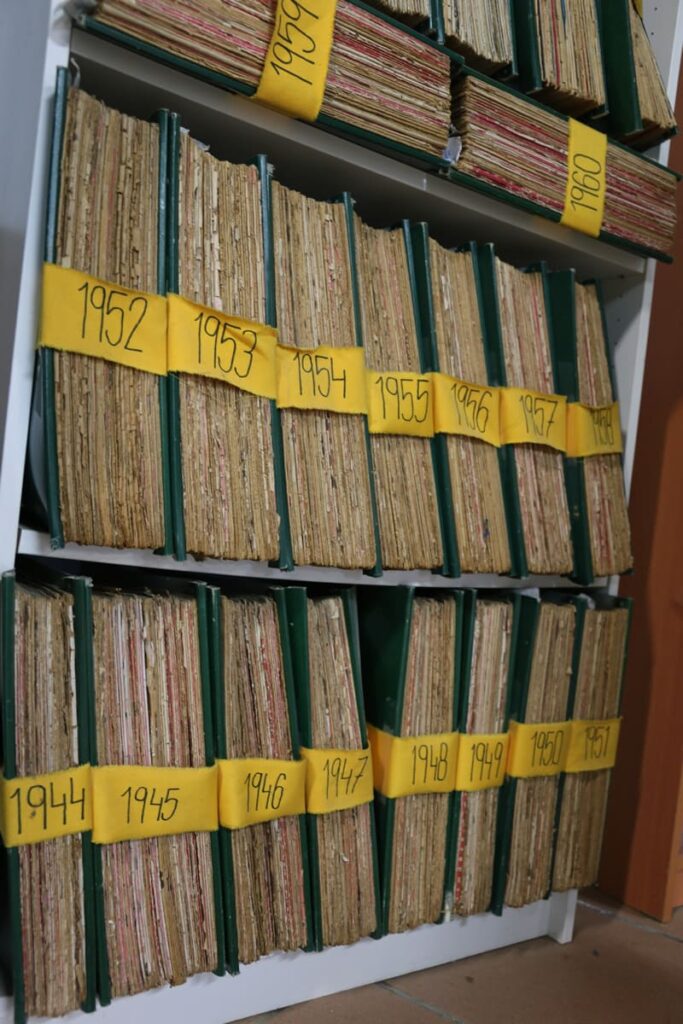 1959
1960
1952
1953
1954
1955
1956
1957
1958
1944
1945
1946
1947
1948
1949
1950
1951